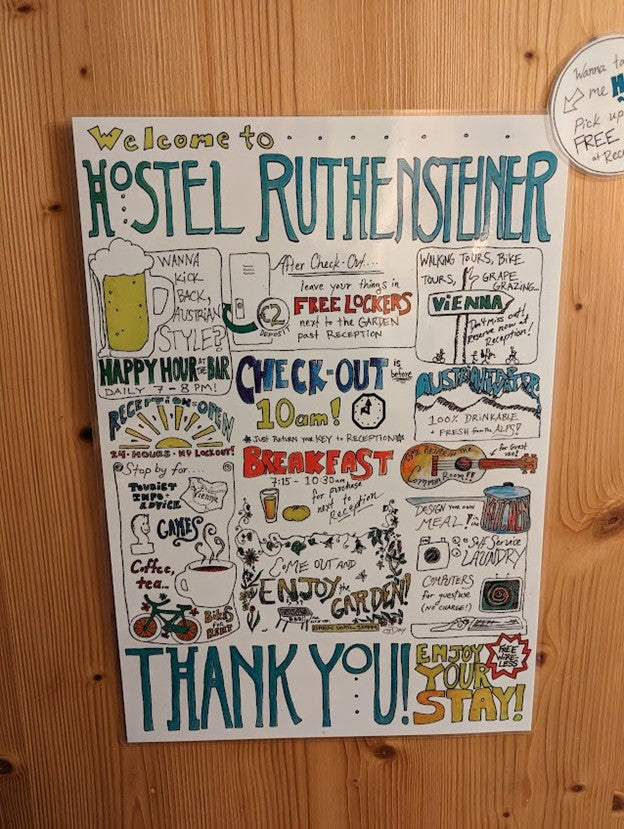 Welcome to
HOSTEL RUTHENSTEINER
WANNA
KICK
BACK,
AUSTRIAN
STYLE?
HAPPY HOUR AT THE BAR
DAILY 7-8 PM!
After Check-Out....
leave your things in
FREE LOCKERS
next to the GARDEN
past RECEPTION
€2
DEPOSIT
WALKING TOURS, BIKE
TOURS, GRAPE
GRAZING...
VIENNA
Don't miss out!
Reserve now at
Reception!
CHECK-OUT is before
10am!
*Just Return your KEY to RECEPTION*
100% DRINKABLE
+ FRESH from the ALPS!
RECEPTION OPEN
24-HOURS-NO LOCKOUT!
BREAKFAST
7:15 - 10:30am
for purchase
next to
Reception
COME RELAX in the
COMMON ROOM!!
for Guest
use!
Stop by for....
TOURIST
INFO+
ADVICE
Vienna
GAMES
Coffee,
tea...
BIKES
FOR
RENT
COME OUT AND
ENJOY the
GARDEN!
DESIGN YOUR OWN
MEAL!
Self Service
LAUNDRY
COMPUTERS
for guest use
(NO CHARGE!)
THANK YOU!
ENJOY
YOUR
STAY!
FREE
WIRE-
LESS
Wanna ta
me H
Pick up
FREE
at Rec